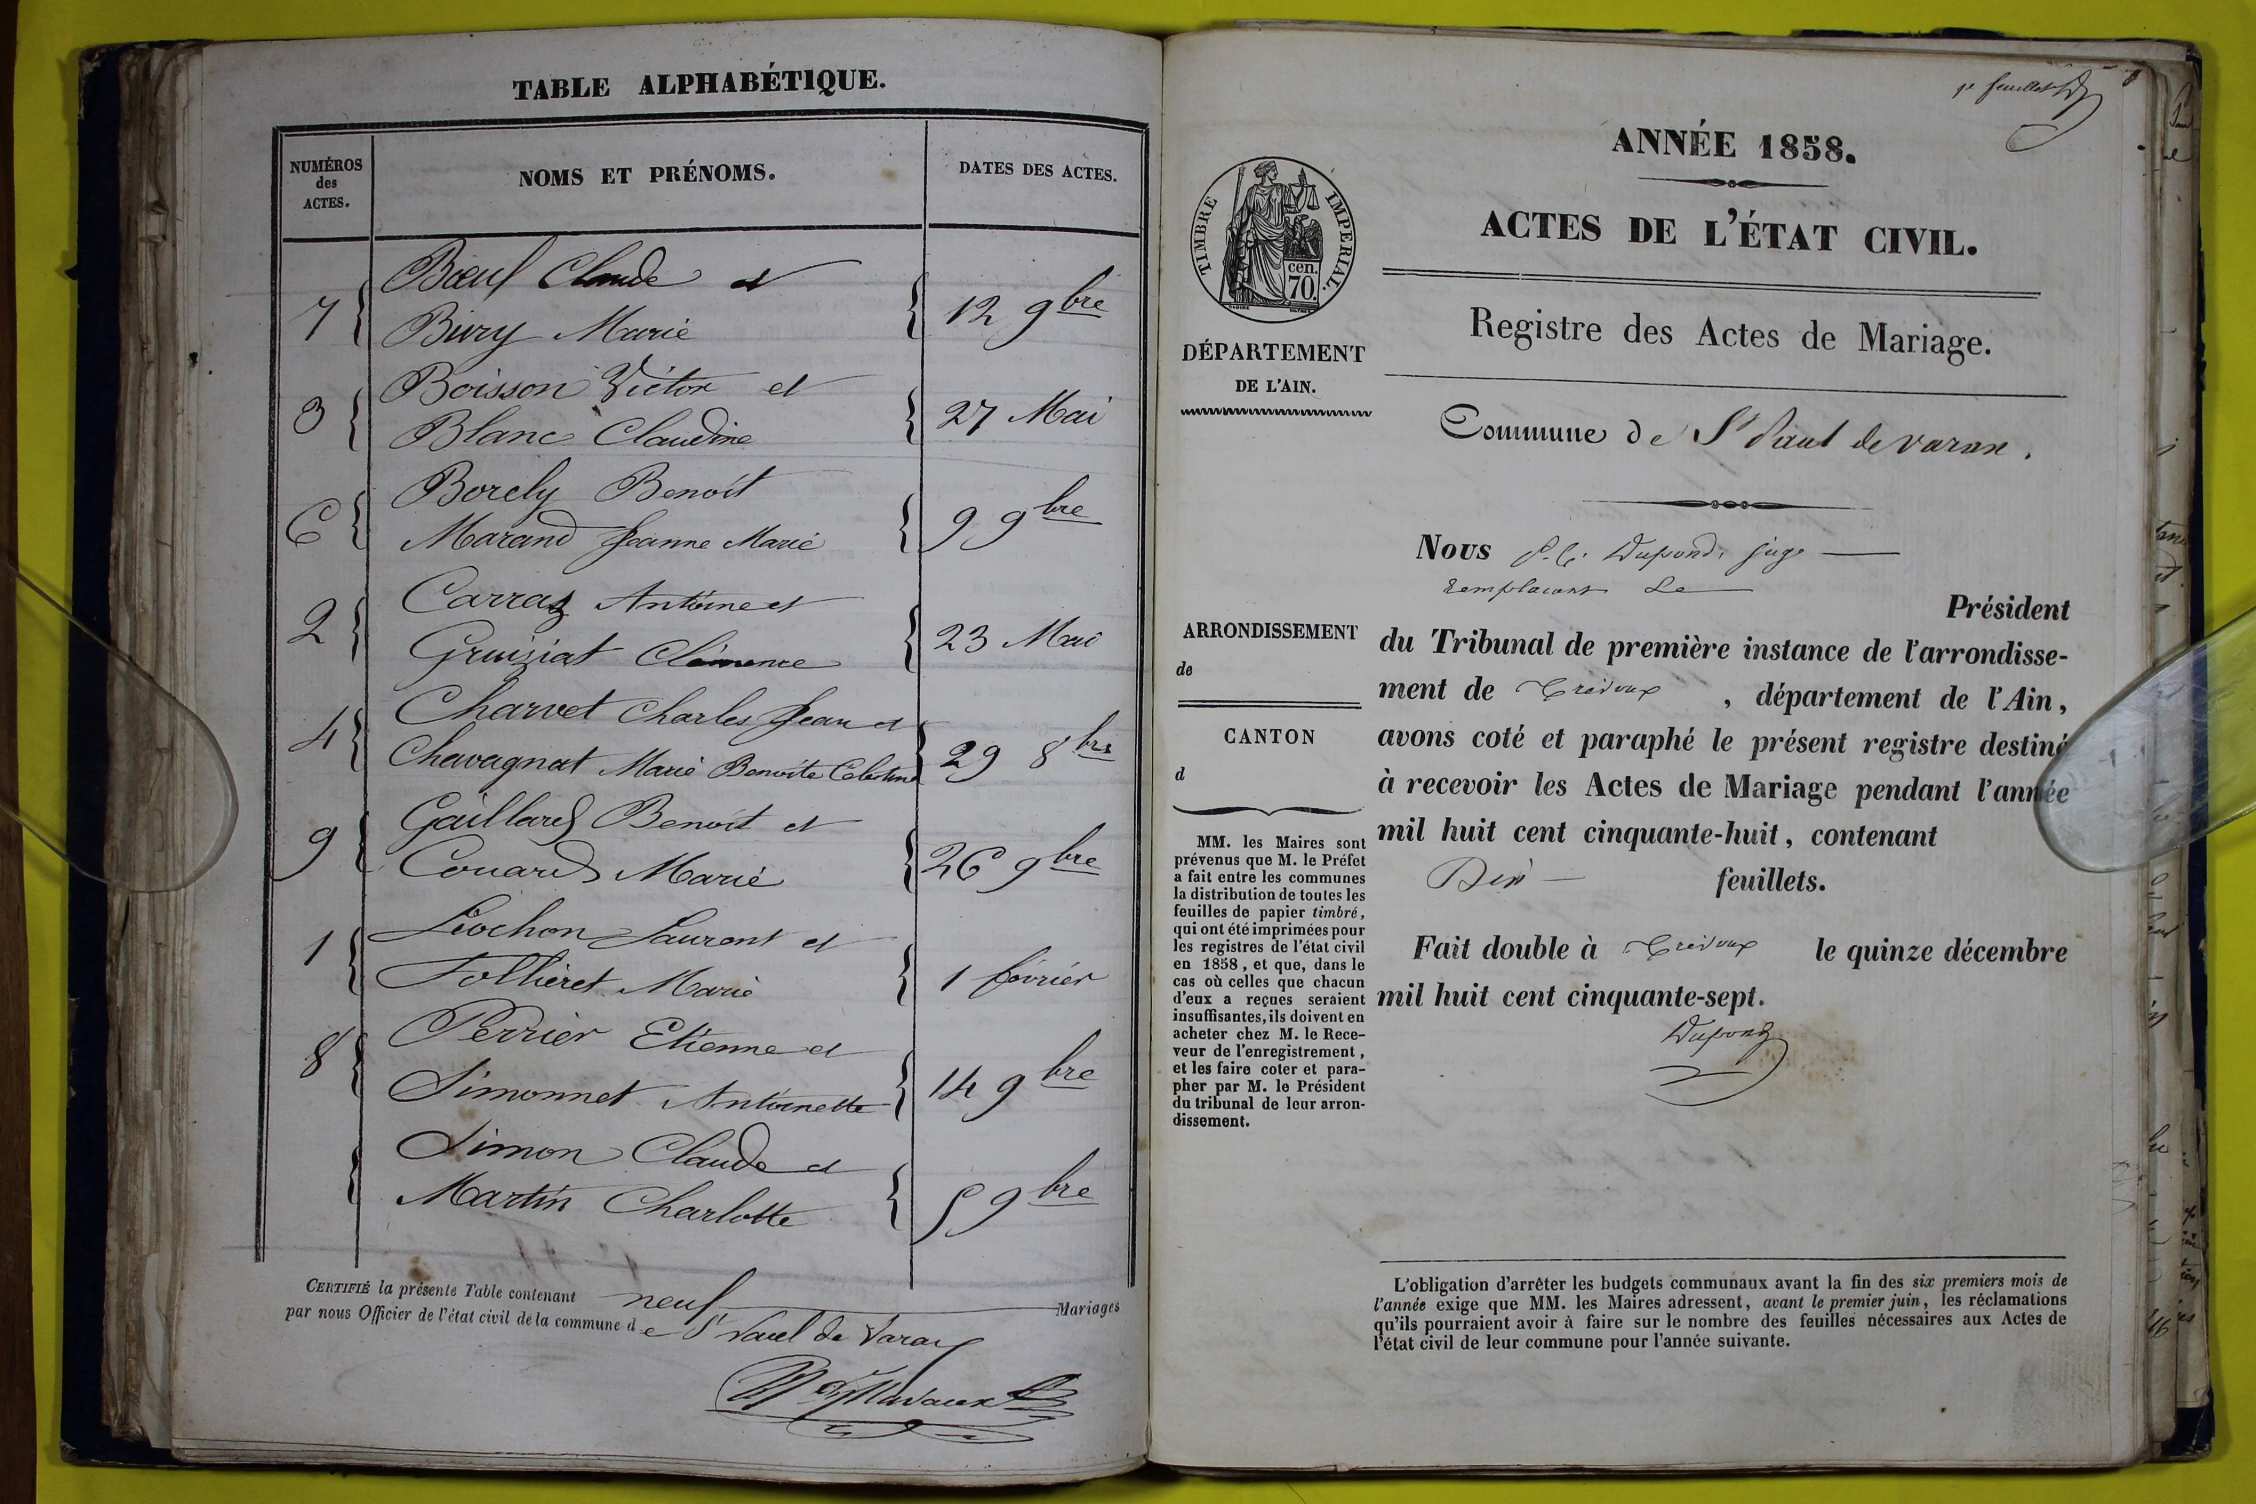 TABLE ALPHABÉTIQUE.
NUMÉROS
des
ACTES.
NOMS ET PRÉNOMS.
DATES DES ACTES.
Bœuf Claude et
7 Buiry Marie 12 9bre
Boisson Victor et
3 Blanc Claudine 27 Mai
Borely Benoît
6 Marand Jeanne Marie 9 9bre
Carraz Antoine et
2 Gruiziat Clémence 23 Mai
Charvet Charles Jean et
4 Chavagnat Marie Benoite Celestine 29 8bre
Gaillard Benoit et
9 Couard Marie 26 9bre
Liochon Laurent et
1 Tollieret Marie 1 février
Perrier Etienne et
8 Simonnet Antoinette 14 9bre
Simon Claude et
Martin Charlotte 5 9bre
CERTIFIÉ la présente Table contenant neuf Mariages
par nous Officier de l'état civil de la commune de St Paul de Varax
1er feuillet
ANNÉE 1858.
ACTES DE L'ÉTAT CIVIL.
TIMBRE IMPÉRIAL.
cen.
70.
Registre des Actes de Mariage.
DÉPARTEMENT
DE L'AIN.
Commune de St Paul de varax.
Nous P. C. Dupond, juge
remplacant Le
Président
du Tribunal de première instance de l'arrondisse-
ment de Trévoux, département de l'Ain,
avons coté et paraphé le présent registre destiné
à recevoir les Actes de Mariage pendant l'année
mil huit cent cinquante-huit, contenant
Dix feuillets.
Fait double à Trévoux le quinze décembre
mil huit cent cinquante-sept.
Dupond
ARRONDISSEMENT
de
CANTON
d
MM. les Maires sont
prévenus que M. le Préfet
a fait entre les communes
la distribution de toutes les
feuilles de papier timbré,
qui ont été imprimées pour
les registres de l'état civil
en 1858, et que, dans le
cas où celles que chacun
d'eux a reçues seraient
insuffisantes, ils doivent en
acheter chez M. le Rece-
veur de l'enregistrement,
et les faire coter et para-
pher par M. le Président
du tribunal de leur arron-
dissement.
L'obligation d'arrêter les budgets communaux avant la fin des six premiers mois de
l'année exige que MM. les Maires adressent, avant le premier juin, les réclamations
qu'ils pourraient avoir à faire sur le nombre des feuilles nécessaires aux Actes de
l'état civil de leur commune pour l'année suivante.